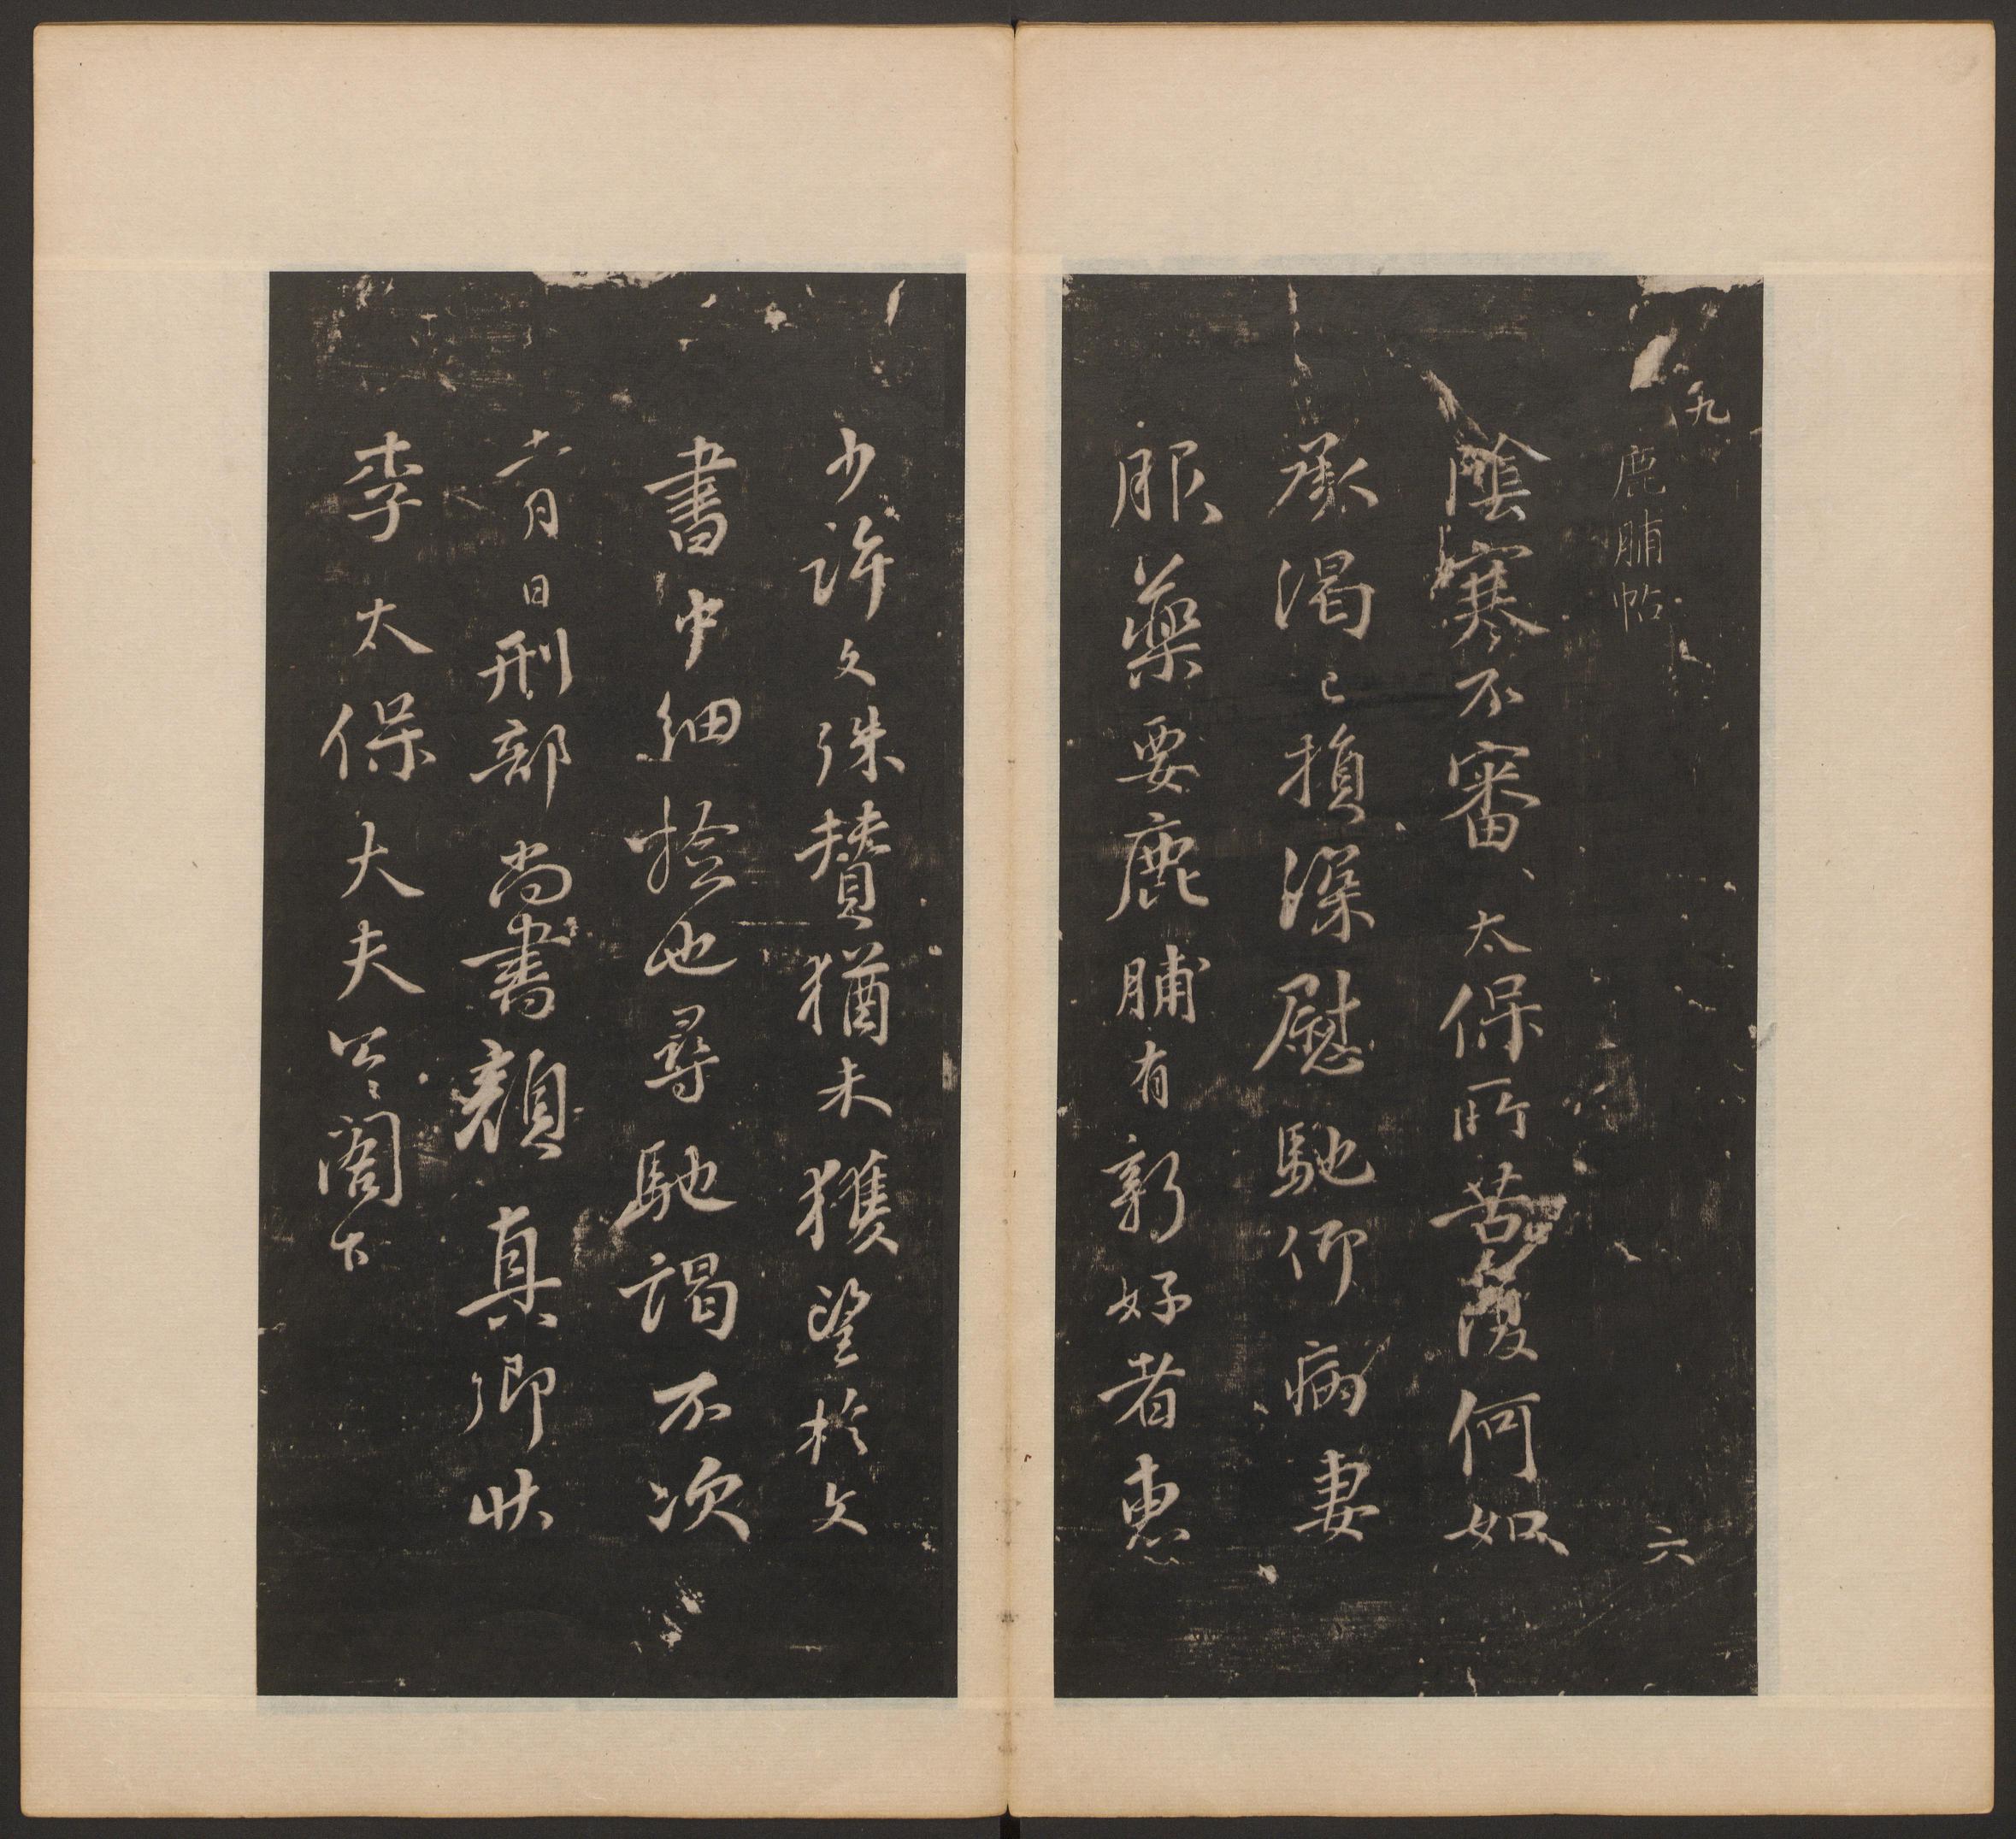 九
鹿脯帖
六
陰寒不審太保所苦復何如
承渴已損深慰馳仰病妻
服藥要鹿脯有新好者惠
少許文殊贊猶未獲望於文
書中細撿也尋馳謁不次
十一月日刑部尚書顏真卿狀
李太保大夫公閣下